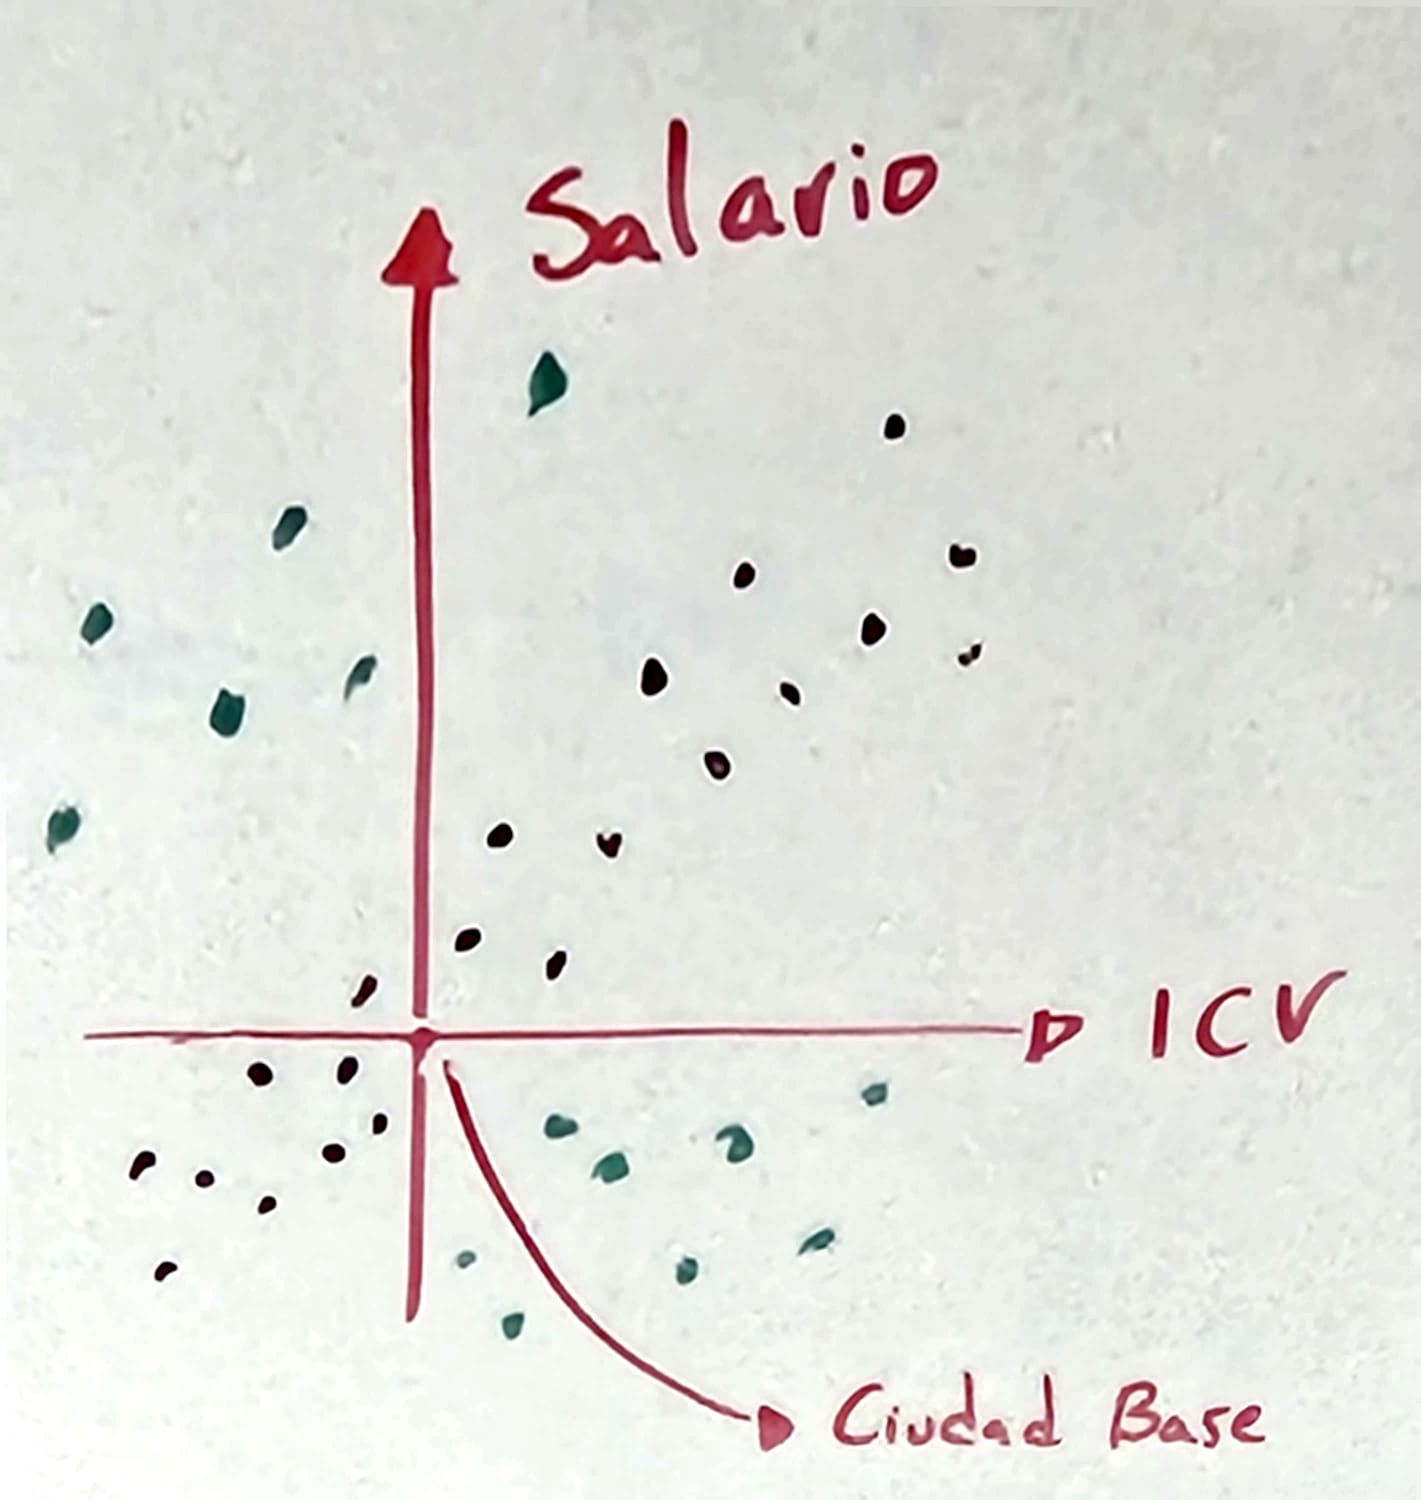 Salario
ICV
Ciudad Base